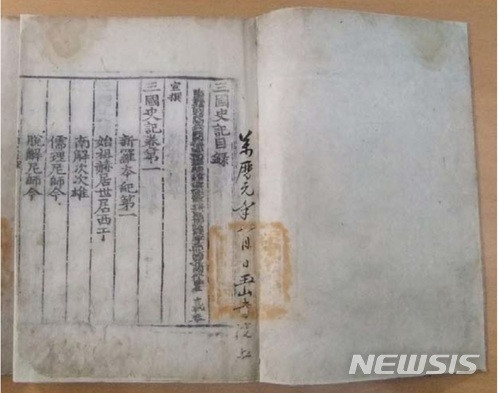 萬曆元年八月日玉山書院上
三國史記目錄
宣撰
三國史記卷第一
新羅本紀第一
始祖赫居世居西干
南解次次雄
儒理尼師今
脫解尼師今
NEWSIS